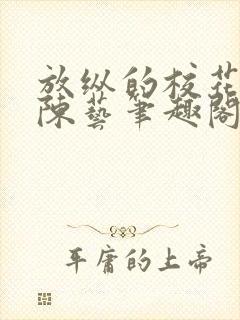 放纵的校花
陈艺笔趣阁
平庸的上帝